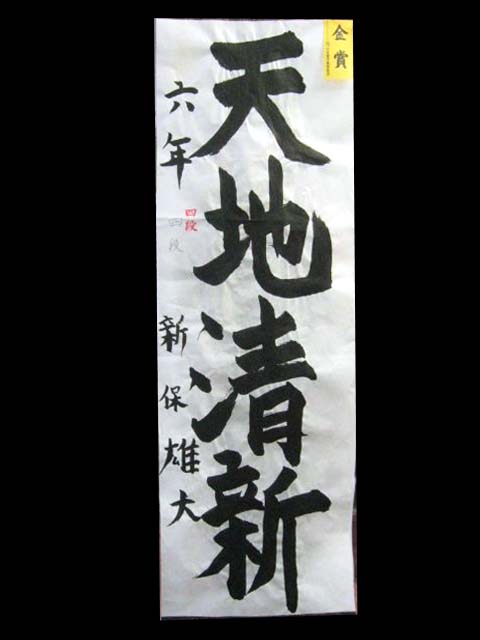 金賞
天地清新
六年
四段
四段
新保雄大